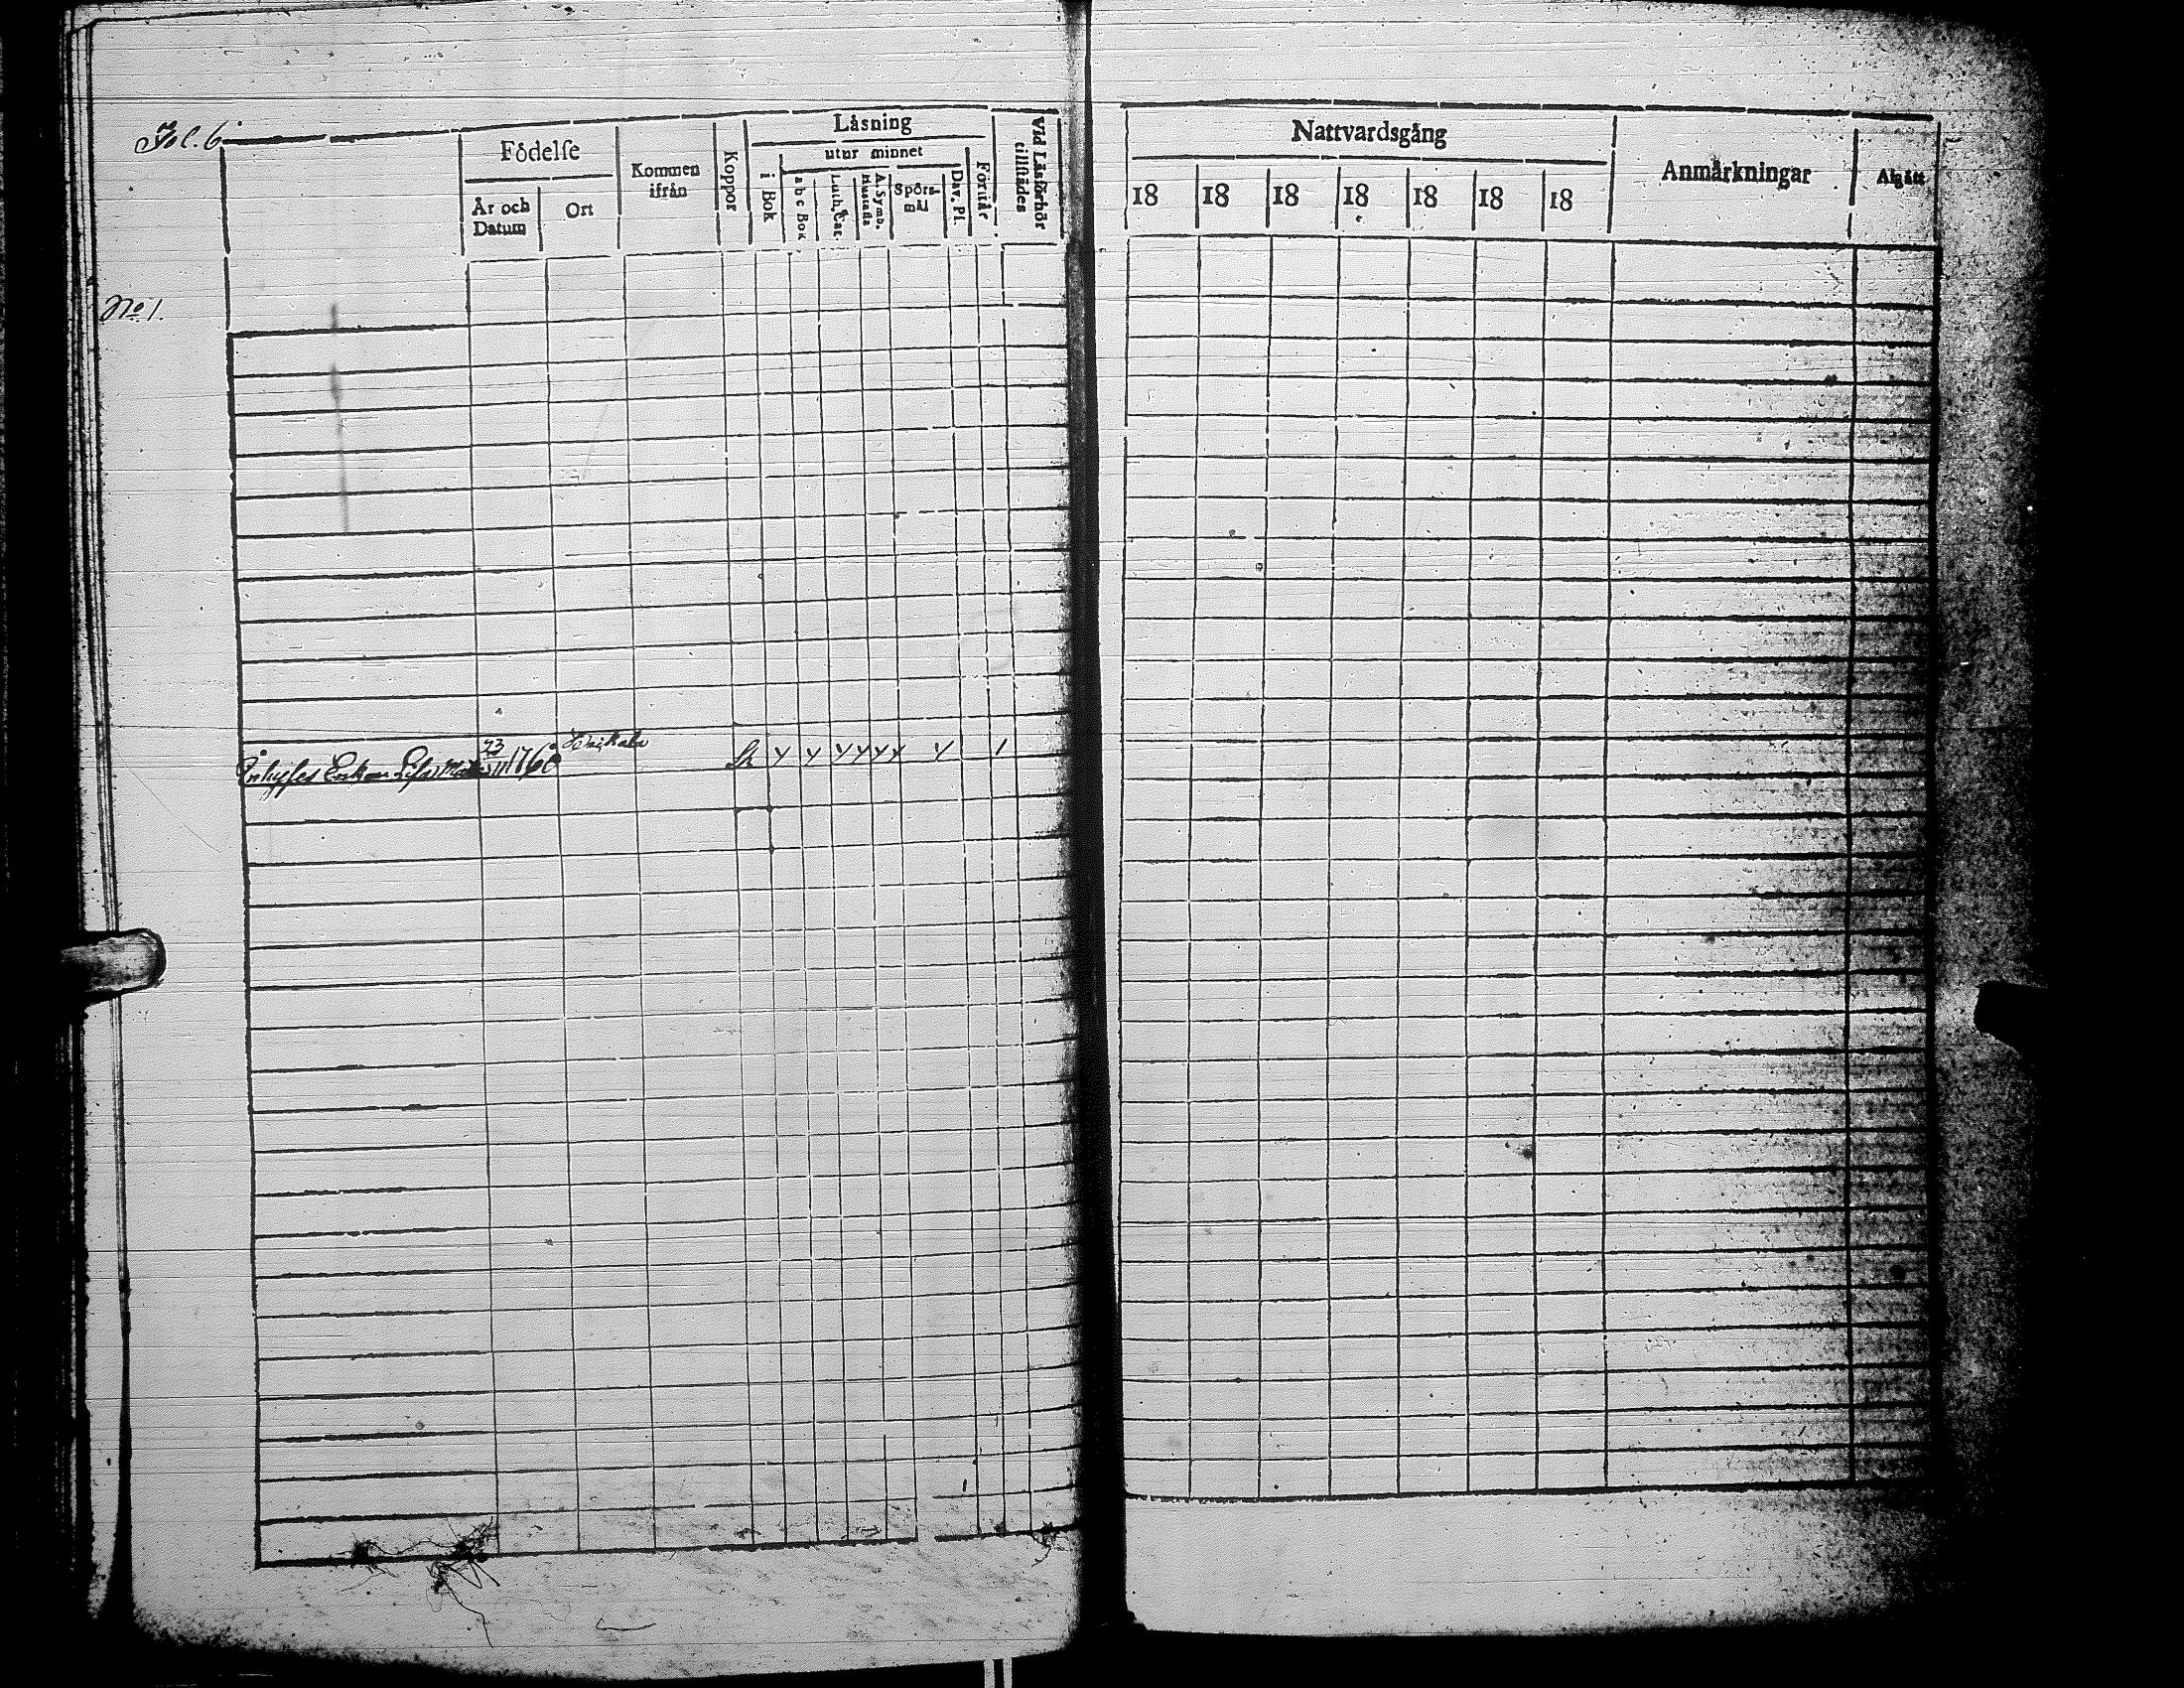 Fol. 6
Födelse
Kommen
ifrån
Koppor
Läsning
utur minnet
i Bok
a b c Bok
Luth. Cat.
A. Symb.
Hustafla
Spörs-
mål
Dav. Ps.
Förstår
Vid Läsförhör
tillstädes
År och
Datum
Ort
Nattvardsgång
18 18 18 18 18 18 18
Anmärkningar
Afgått
No 1.
Inhyses Enkan Lisa 23/11 1760 y y y y y y y 1